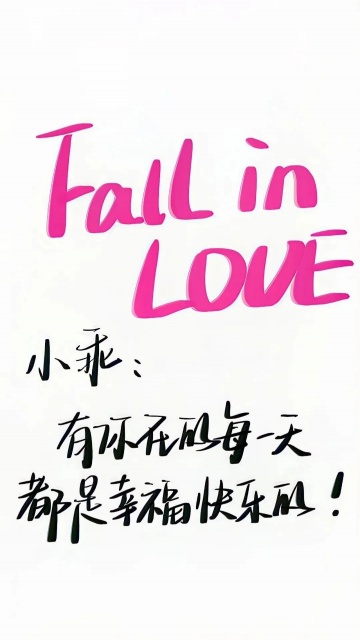 Fall in
LOVE
小乖：
有你在的每一天
都是幸福快乐的！